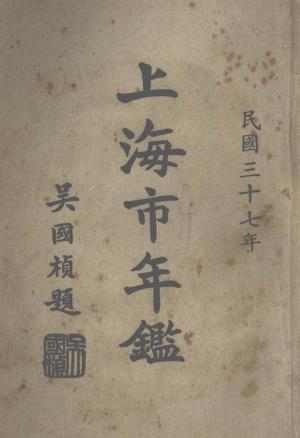 民國三十七年
上海市年鑑
吳國楨題
吳國楨